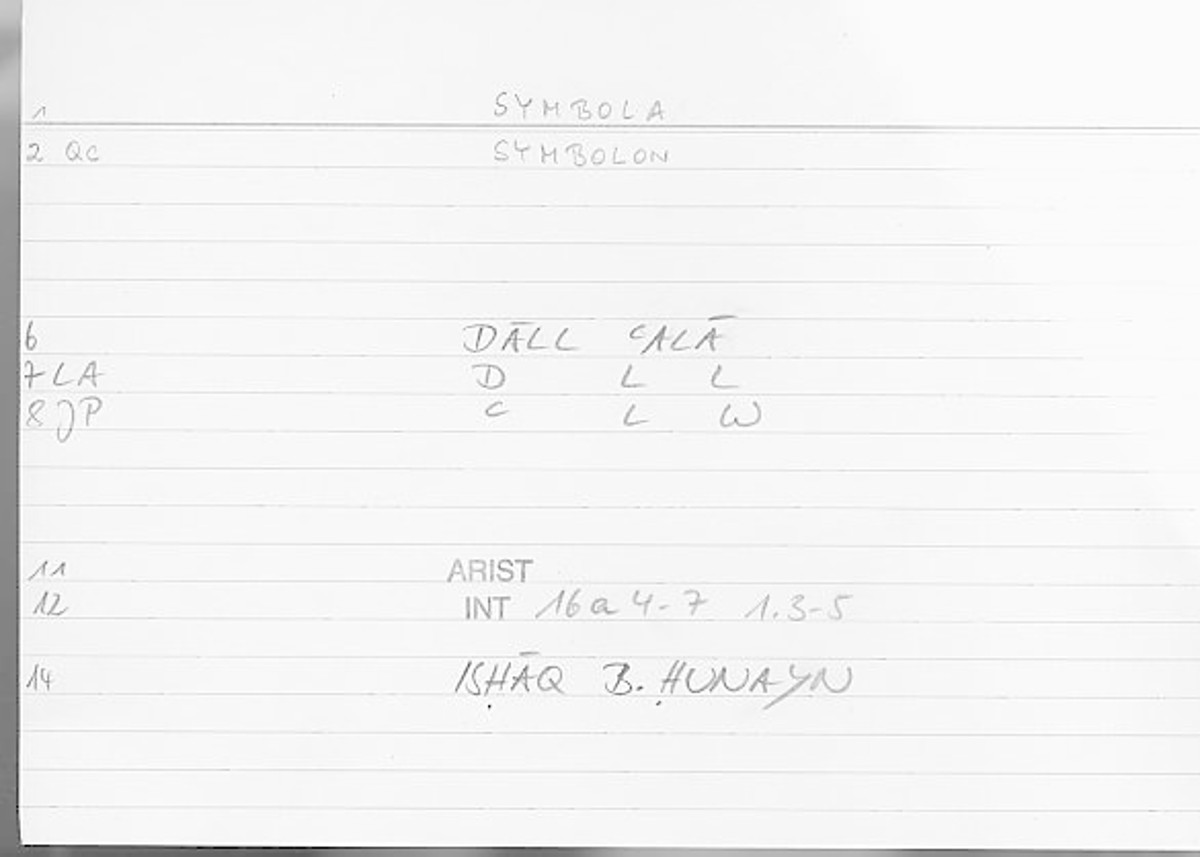 1 SYMBOLA
2 QC SYMBOLON
6 DĀLL ʿALĀ
7 LA D L L
8 JP ʿ L W
11 ARIST
12 INT 16a 4-7 1.3-5
14 ISḤĀQ B. ḤUNAYN